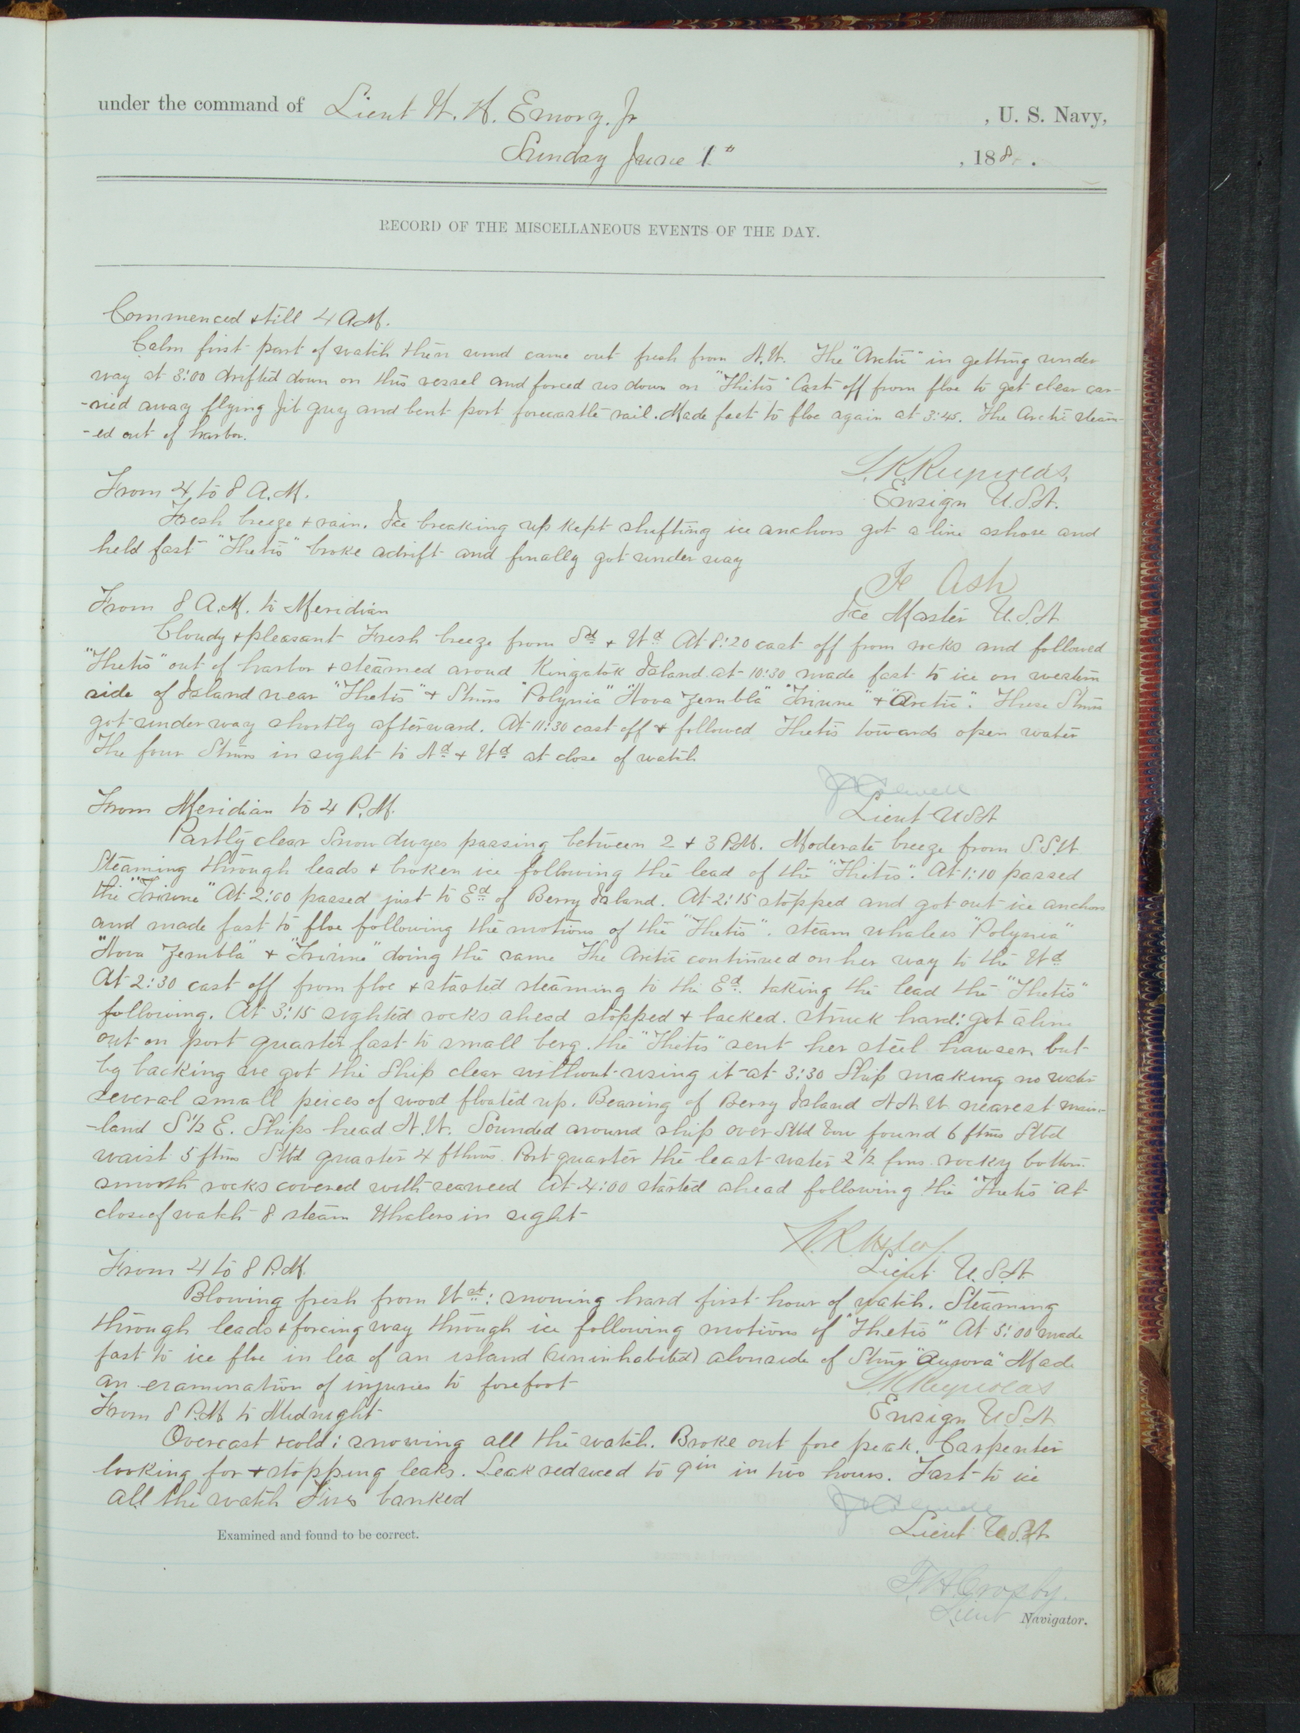 under the command of Lieut W. H. Emory. Jr , U. S. Navy,
Sunday June 1st , 188 .
RECORD OF THE MISCELLANEOUS EVENTS OF THE DAY.
Commenced & till 4 A.M.
Calm first part of watch then wind came out fresh from N.W. The "Arctic" in getting under
way at 3:00 drifted down on this vessel and forced us down on "Thetis" Cast off from floe to get clear car-
-ried away flying jib guy and bent port forecastle rail. Made fast to floe again at 3:45. The Arctic steam-
-ed out of harbor.
L.K. Reynolds,
Ensign U.S.N.
From 4 to 8 A.M.
Fresh breeze & rain. Ice breaking up kept shifting ice anchors got a line ashore and
held fast "Thetis" broke adrift and finally got under way
Ash
Ice Master U.S.N
From 8 A.M. to Meridian
Cloudy & pleasant Fresh breeze from Sd & Wd At 8:20 cast off from rocks and followed
"Thetis" out of harbor & steamed aroud Kingatok Island. at 10:30 made fast to ice on western
side of Island near "Thetis" & Stmrs "Polynia" "Nova Zembla" "Triune" & "Arctic". These Stmrs
got under way shortly afterward. At 11:30 cast off & followed Thetis towards open water
The four Stmrs in sight to Nd & Wd at close of watch
Lieut USN
From Meridian to 4 P.M.
Partly clear Snow passing between 2 & 3 P.M. Moderate breeze from S.S.W
Steaming through leads & broken ice following the lead of the "Thetis". At 1:10 passed
the "Triune" At 2:00 passed just to Ed of Berry Island. At 2:15 stopped and got out ice anchors
and made fast to floe following the motions of the "Thetis". steam whalers "Polynia"
"Nova Zembla" & "Triune" doing the same The Arctic continued on her way to the Wd
At 2:30 cast off from floe & started steaming to the Ed. taking the lead the "Thetis"
following. At 3:15 sighted rocks ahead stopped & backed. struck hard: got a line
out on port quarter fast to small berg. the "Thetis" sent her steel hawser but
by backing we got the Ship clear without using it at 3:30 Ship making no water
several small peices of wood floated up. Bearing of Berry Island N.N.W. nearest main-
-land S ½ E. Ships head N.W. Sounded around ship over Stbd bow found 6 ftms Stbd
waist 5 ftms Stbd quarter 4 fthms. Port quarter the least water 2½ fms. rocky bottom
smooth rocks covered with seaweed At 4:00 started ahead following the "Thetis" at
close of watch 8 steam Whalers in sight
Lieut U.S.N
From 4 to 8 P.M.
Blowing fresh from Wd: snowing hard first hour of watch. Steaming
through leads & forcing way through ice following motions of "Thetis" At 5:00 made
fast to ice floe in lea of an island (uninhabited) alonside of Stmr "Aurora" Made
an examination of injuries to forefoot
L.K. Reynolds
Ensign U.S.N
From 8 P.M. to Midnight
Overcast & cold; snowing all the watch. Broke out fore peak. Carpenter
looking for & stopping leaks. Leak reduced to 9in in two hours. Fast to ice
all the watch Fires banked
Lieut U.S.N.
Examined and found to be correct.
Crosby.
Lieut Navigator.